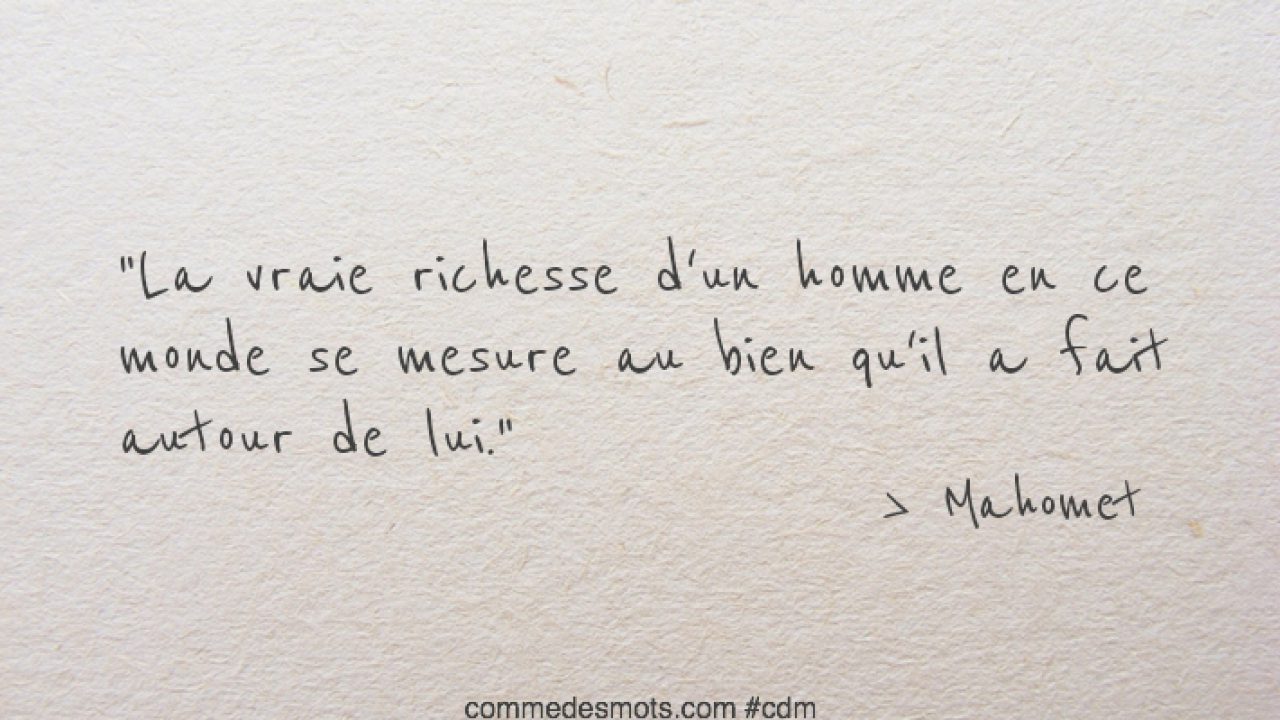 "La vraie richesse d'un homme en ce
monde se mesure au bien qu'il a fait
autour de lui."
> Mahomet
commedesmots.com #cdm